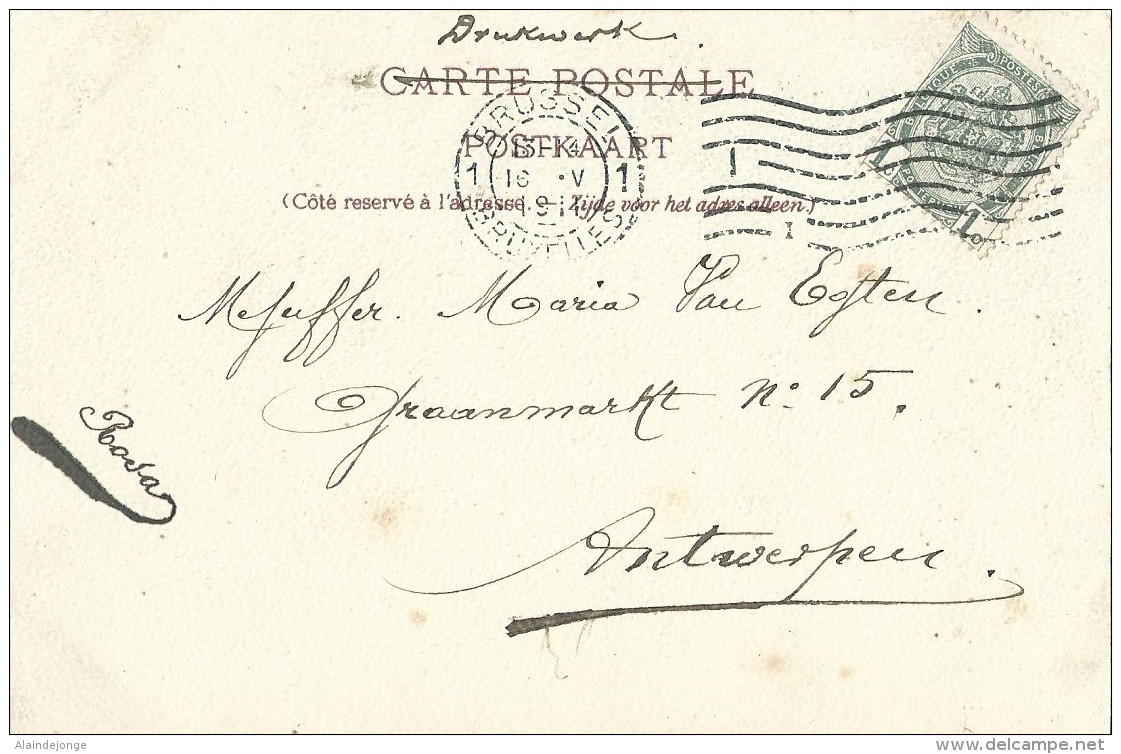 Drukwerk.
CARTE POSTALE
POSTKAART
(Côté reservé à l'adresse. — Zijde voor het adres alleen.)
BRUSSEL
13-14
1 16 · V 1
BRUXELLES
BELGIQUE POSTES
1 1
Mejuffer. Maria Van Egten.
Graanmarkt No. 15.
Rosa
Antwerpen.
Alaindejonge
delcampe.net